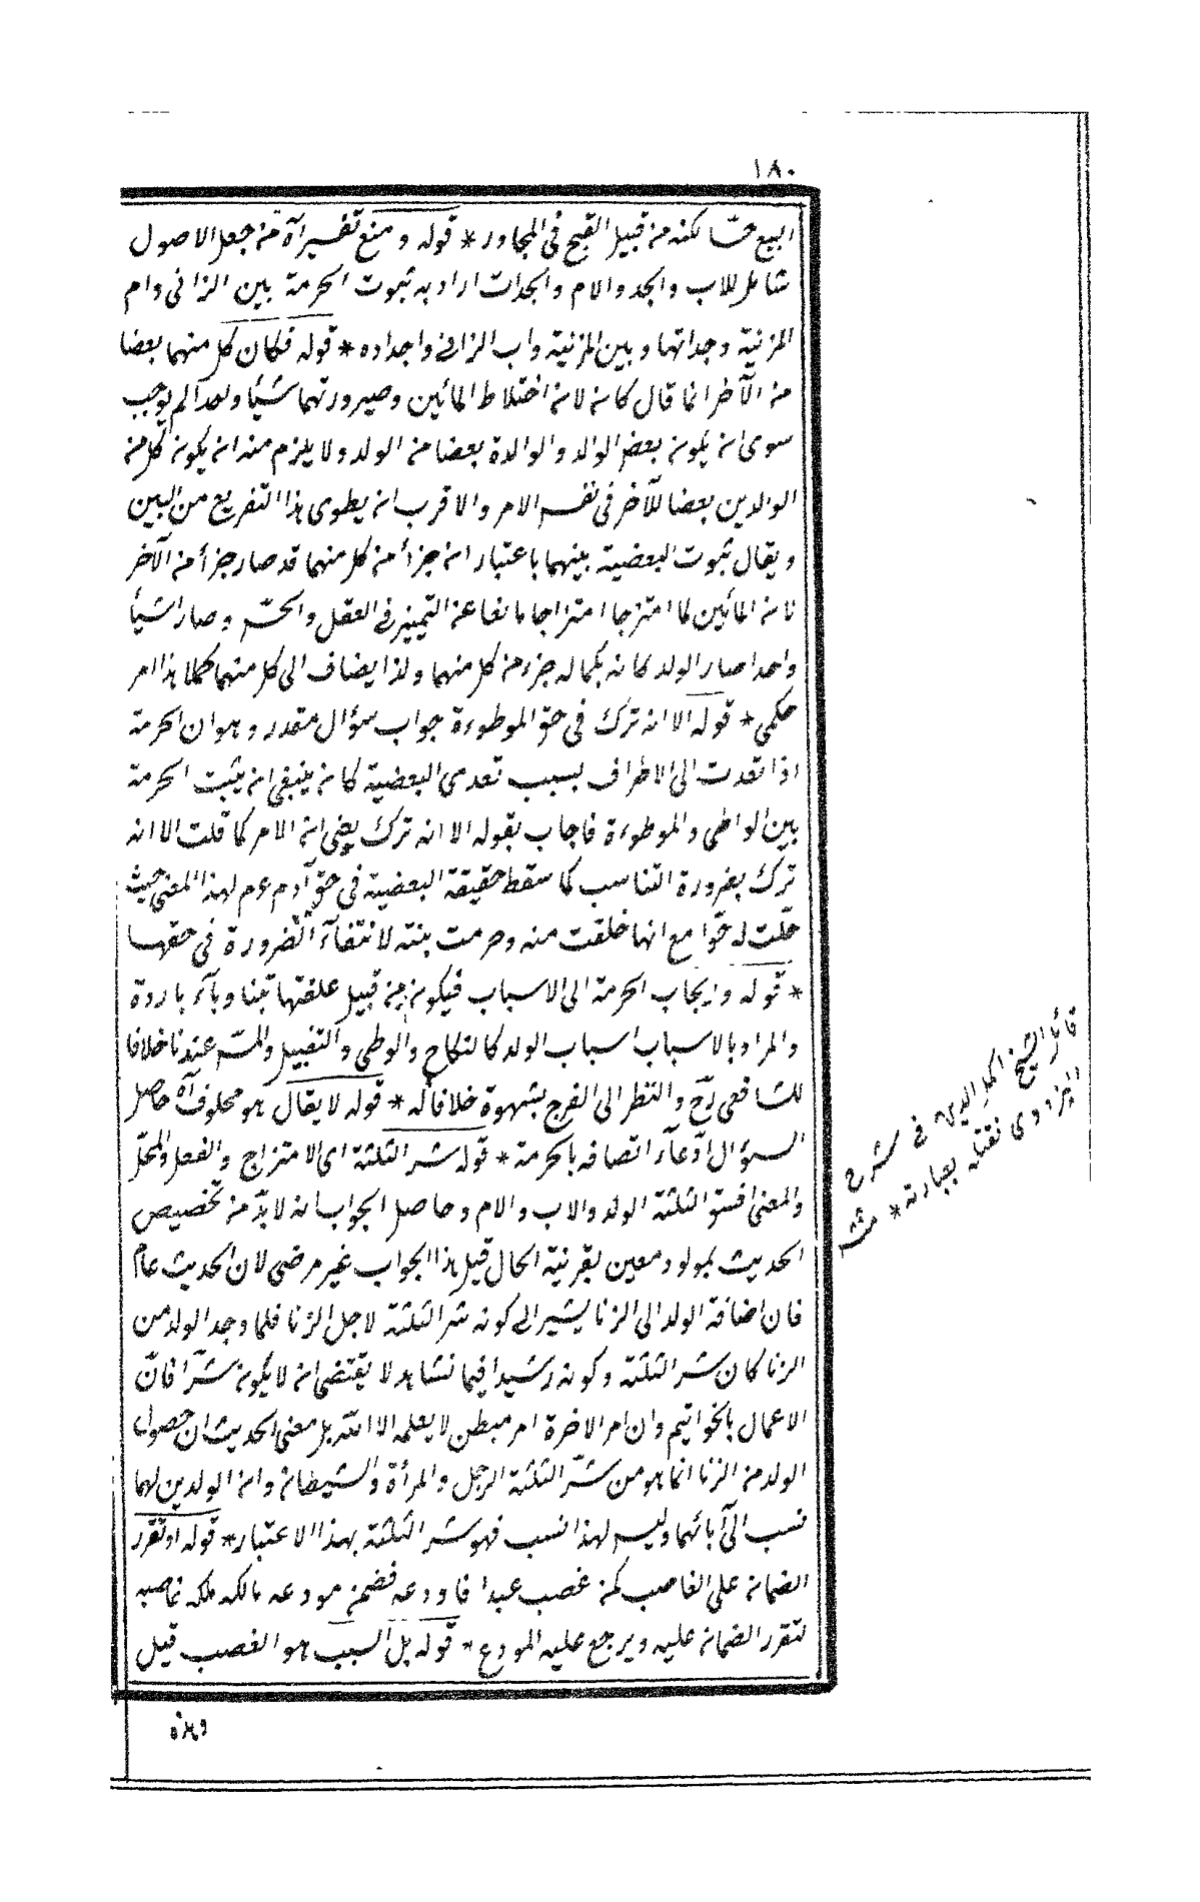 ١٨٠
البيع حسّا لكنه من قبيل القبح فى المجاور * قوله ومنع تفسير آه من جعل الاصول
شاملا للاب والجد والام والجدات اراد به ثبوت الحرمة بين الزانى وام
المزنية وجداتها وبين المزنية واب الزانى واجداده * قوله فكان كل منهما بعضا
من الآخر انما قال كان لان اختلاط المائين وصيرورتهما شيئا واحدا لم يوجب
سوى ان يكون بعض الوالد والوالدة بعضا من الولد ولا يلزم منه ان يكون كل من
الوالدين بعضا للآخر فى نفس الامر والاقرب ان يطوى هذا التفريع من البين
ويقال ثبوت البعضية بينهما باعتبار ان جزأ من كل منهما قد صار جزأ من الآخر
فان المائين لما امتزجا امتزاجا مانعا عن التمييز فى العقل والحسّ وصارا شيئا
واحدا صار الولد كانه بكماله جزء من كل منهما ولذا يضاف الى كل منهما كملا هذا امر
حكمى * قوله الا انه ترك فى حق الموطوءة جواب سؤال مقدر وهو ان الحرمة
اذا تعدت الى الاطراف بسبب تعدى البعضية كان ينبغى ان يثبت الحرمة
بين الواطى والموطوءة فاجاب بقوله الا انه ترك يعنى ان الامر كما قلت الا انه
ترك بضرورة التناسب كما سقط حقيقة البعضية فى حق آدم عم لهذا المعنى حيث
حلّت له حوّا مع انها خلقت منه وحرمت بنته لانتفآء الضرورة فى حقها
* قوله وايجاب الحرمة الى الاسباب فيكون من قبيل علفتها تبنا وبآء باردة
والمراد بالاسباب اسباب الولد كالنكاح والوطى والتقبيل والمسّ عندنا خلافا
للشافعى رح والنظر الى الفرج بشهوة خلافا له * قوله لا يقال هو مخلوق آه حاصل
السؤال ادّعآء اتصافه بالحرمة * قوله شر الثلثة اى الامتزاج والفعل والمحلّ
والمعنى افسق الثلثة الولد والاب والام وحاصل الجواب انه لا بدّ من تخصيص
الحديث بمولود معين بقرينة الحال قيل هذا الجواب غير مرضى لان الحديث عام
فان اضافة الولد الى الزنا يشير الى كونه شر الثلثة لاجل الزنا فلما وجد الولد من
الزنا كان شر الثلثة وكونه رشيدا فيما نشاهد لا يقتضى ان لا يكون شرّا فانّ
الاعمال بالخواتيم وان امر الاخرة امر مبطن لا يعلمه الا الله بل معنى الحديث ان حصول
الولد من الزنا انما هو من شرّ الثلثة الرجل والمرأة والشيطان وان الوالدين لهما
نسب الى آبائهما وليس لهذا نسب فهو شر الثلثة بهذا الاعتبار * قوله او تقرر
الضمان على الغاصب كمن غصب عبدا فاودعه فضمن مودعه مالكه ملكه غاصبه
لتقرر الضمان عليه ويرجع عليه المودع * قوله بل السبب هو الغصب قيل
وهذه
قائله الشيخ اكمل الدين فى شرح
البزدوى نقلته بعبارته * منه